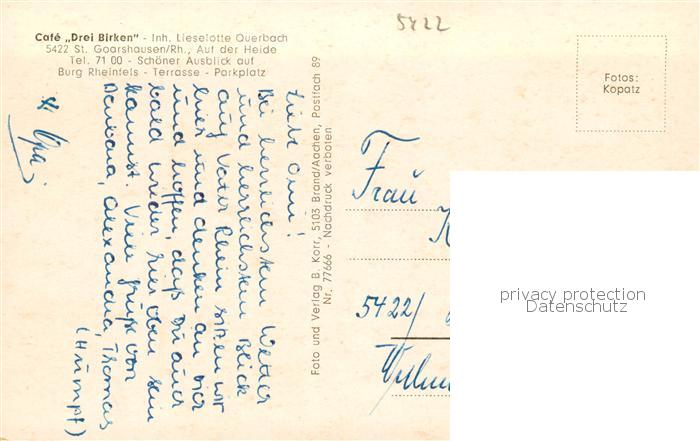 5422
Café „Drei Birken" - Inh. Lieselotte Querbach
5422 St. Goarshausen/Rh., Auf der Heide
Tel. 71 00 - Schöner Ausblick auf
Burg Rheinfels - Terrasse - Parkplatz
Fotos:
Kopatz
Liebe Omi!
Bei herrlichstem Wetter
und herrlichstem Blick
auf Vater Rhein sitzen wir
hier und denken an Dich
und hoffen, daß Du auch
bald wieder hier oben sein
kannst. Viele Grüße von
Barbara, Alexandra, Thomas
(Humpf)
+ Opa.
Foto und Verlag B. Korr, 5103 Brand/Aachen, Postfach 89
Nr. 77666 - Nachdruck verboten
Frau
5422/
privacy protection
Datenschutz